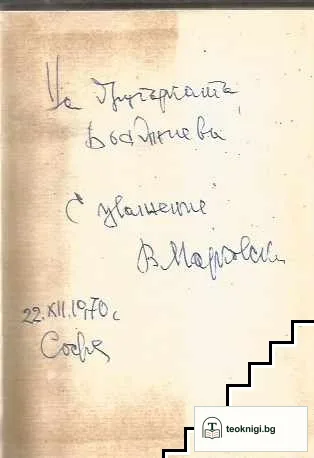 На другарката
Бояджиева
С уважение
В Марковски
22.XII.1970 г
София
teoknigi.bg